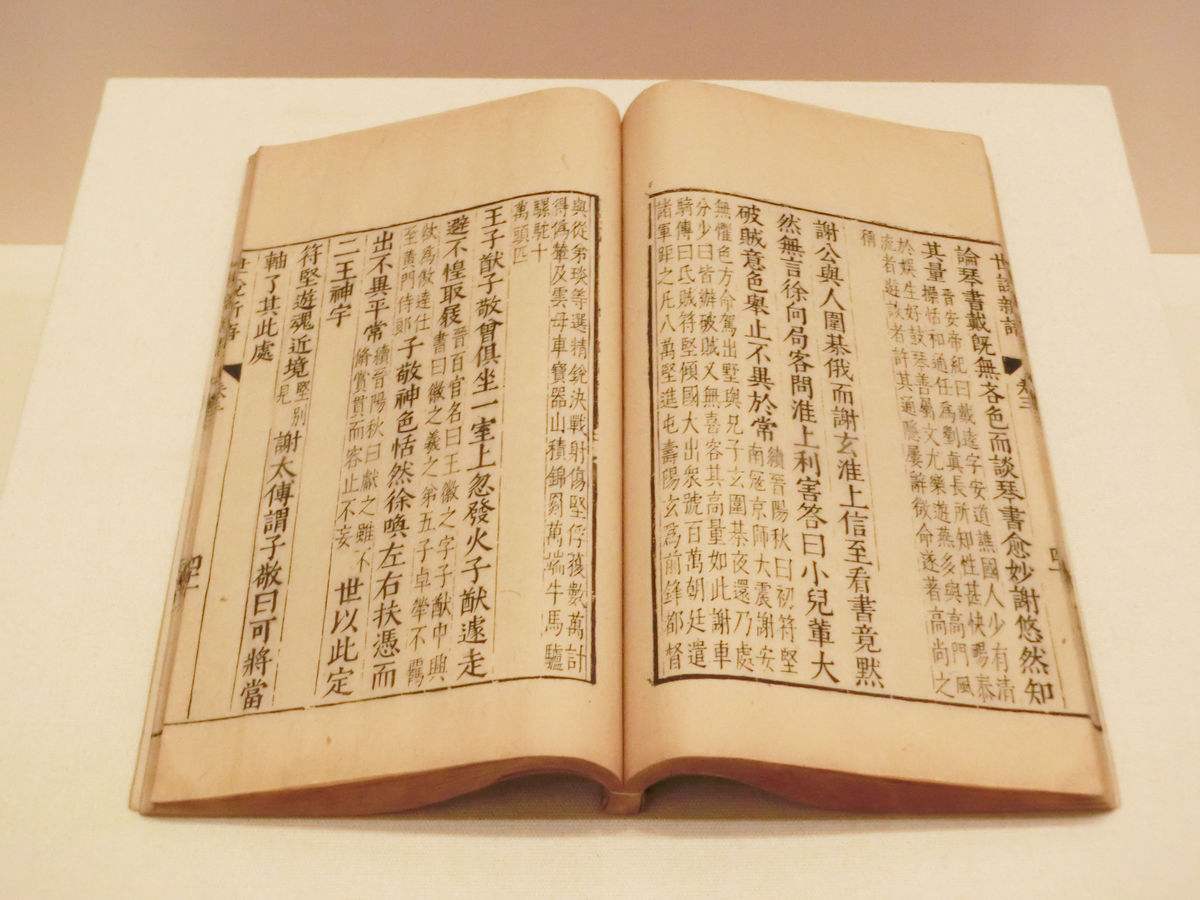 世說新語 卷三
論琴書戴旣無吝色而談琴書愈妙謝悠然知
其量
晉安帝紀曰戴逵字安道譙國人少有清
操恬和通任爲劉真長所知性甚快暢泰
於娛生好鼓琴善屬文尤樂遊燕多與高門風
流者遊談者許其通隱屢辭徵命遂著高尚之
稱
謝公與人圍棊俄而謝玄淮上信至看書竟默
然無言徐向局客問淮上利害答曰小兒輩大
破賊意色舉止不異於常
續晉陽秋曰初符堅
南冦京師大震謝安
無懼色方命駕出墅與兄子玄圍棊夜還乃處
分少日皆辦破賊又無喜客其高量如此謝車
騎傳曰氐賊符堅傾國大出衆號百萬朝廷遣
諸軍距之凡八萬堅進屯壽陽玄爲前鋒都督
與從弟琰等選精銳決戰射傷堅俘獲數萬計
得僞輦及雲母車寶器山積錦罽萬端牛馬驢
騾駝十
萬頭匹
王子猷子敬曾俱坐一室上忽發火子猷遽走
避不惶取屐
晉百官名曰王徽之字子猷中興
書曰徽之羲之弟五子卓犖不羈
欲爲傲達仕
至黃門侍郎
子敬神色恬然徐喚左右扶憑而
出不異平常
續晉陽秋曰獻之雖不
脩賞貫而容止不妄
世以此定
二王神宇
符堅遊魂近境
堅別
見
謝太傅謂子敬曰可將當
軸了其此處
世說新語